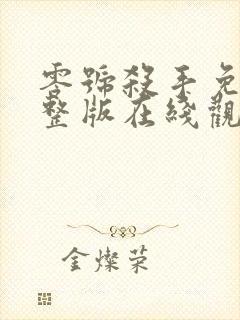 零號殺手免
整版在綫觀
金燦荣